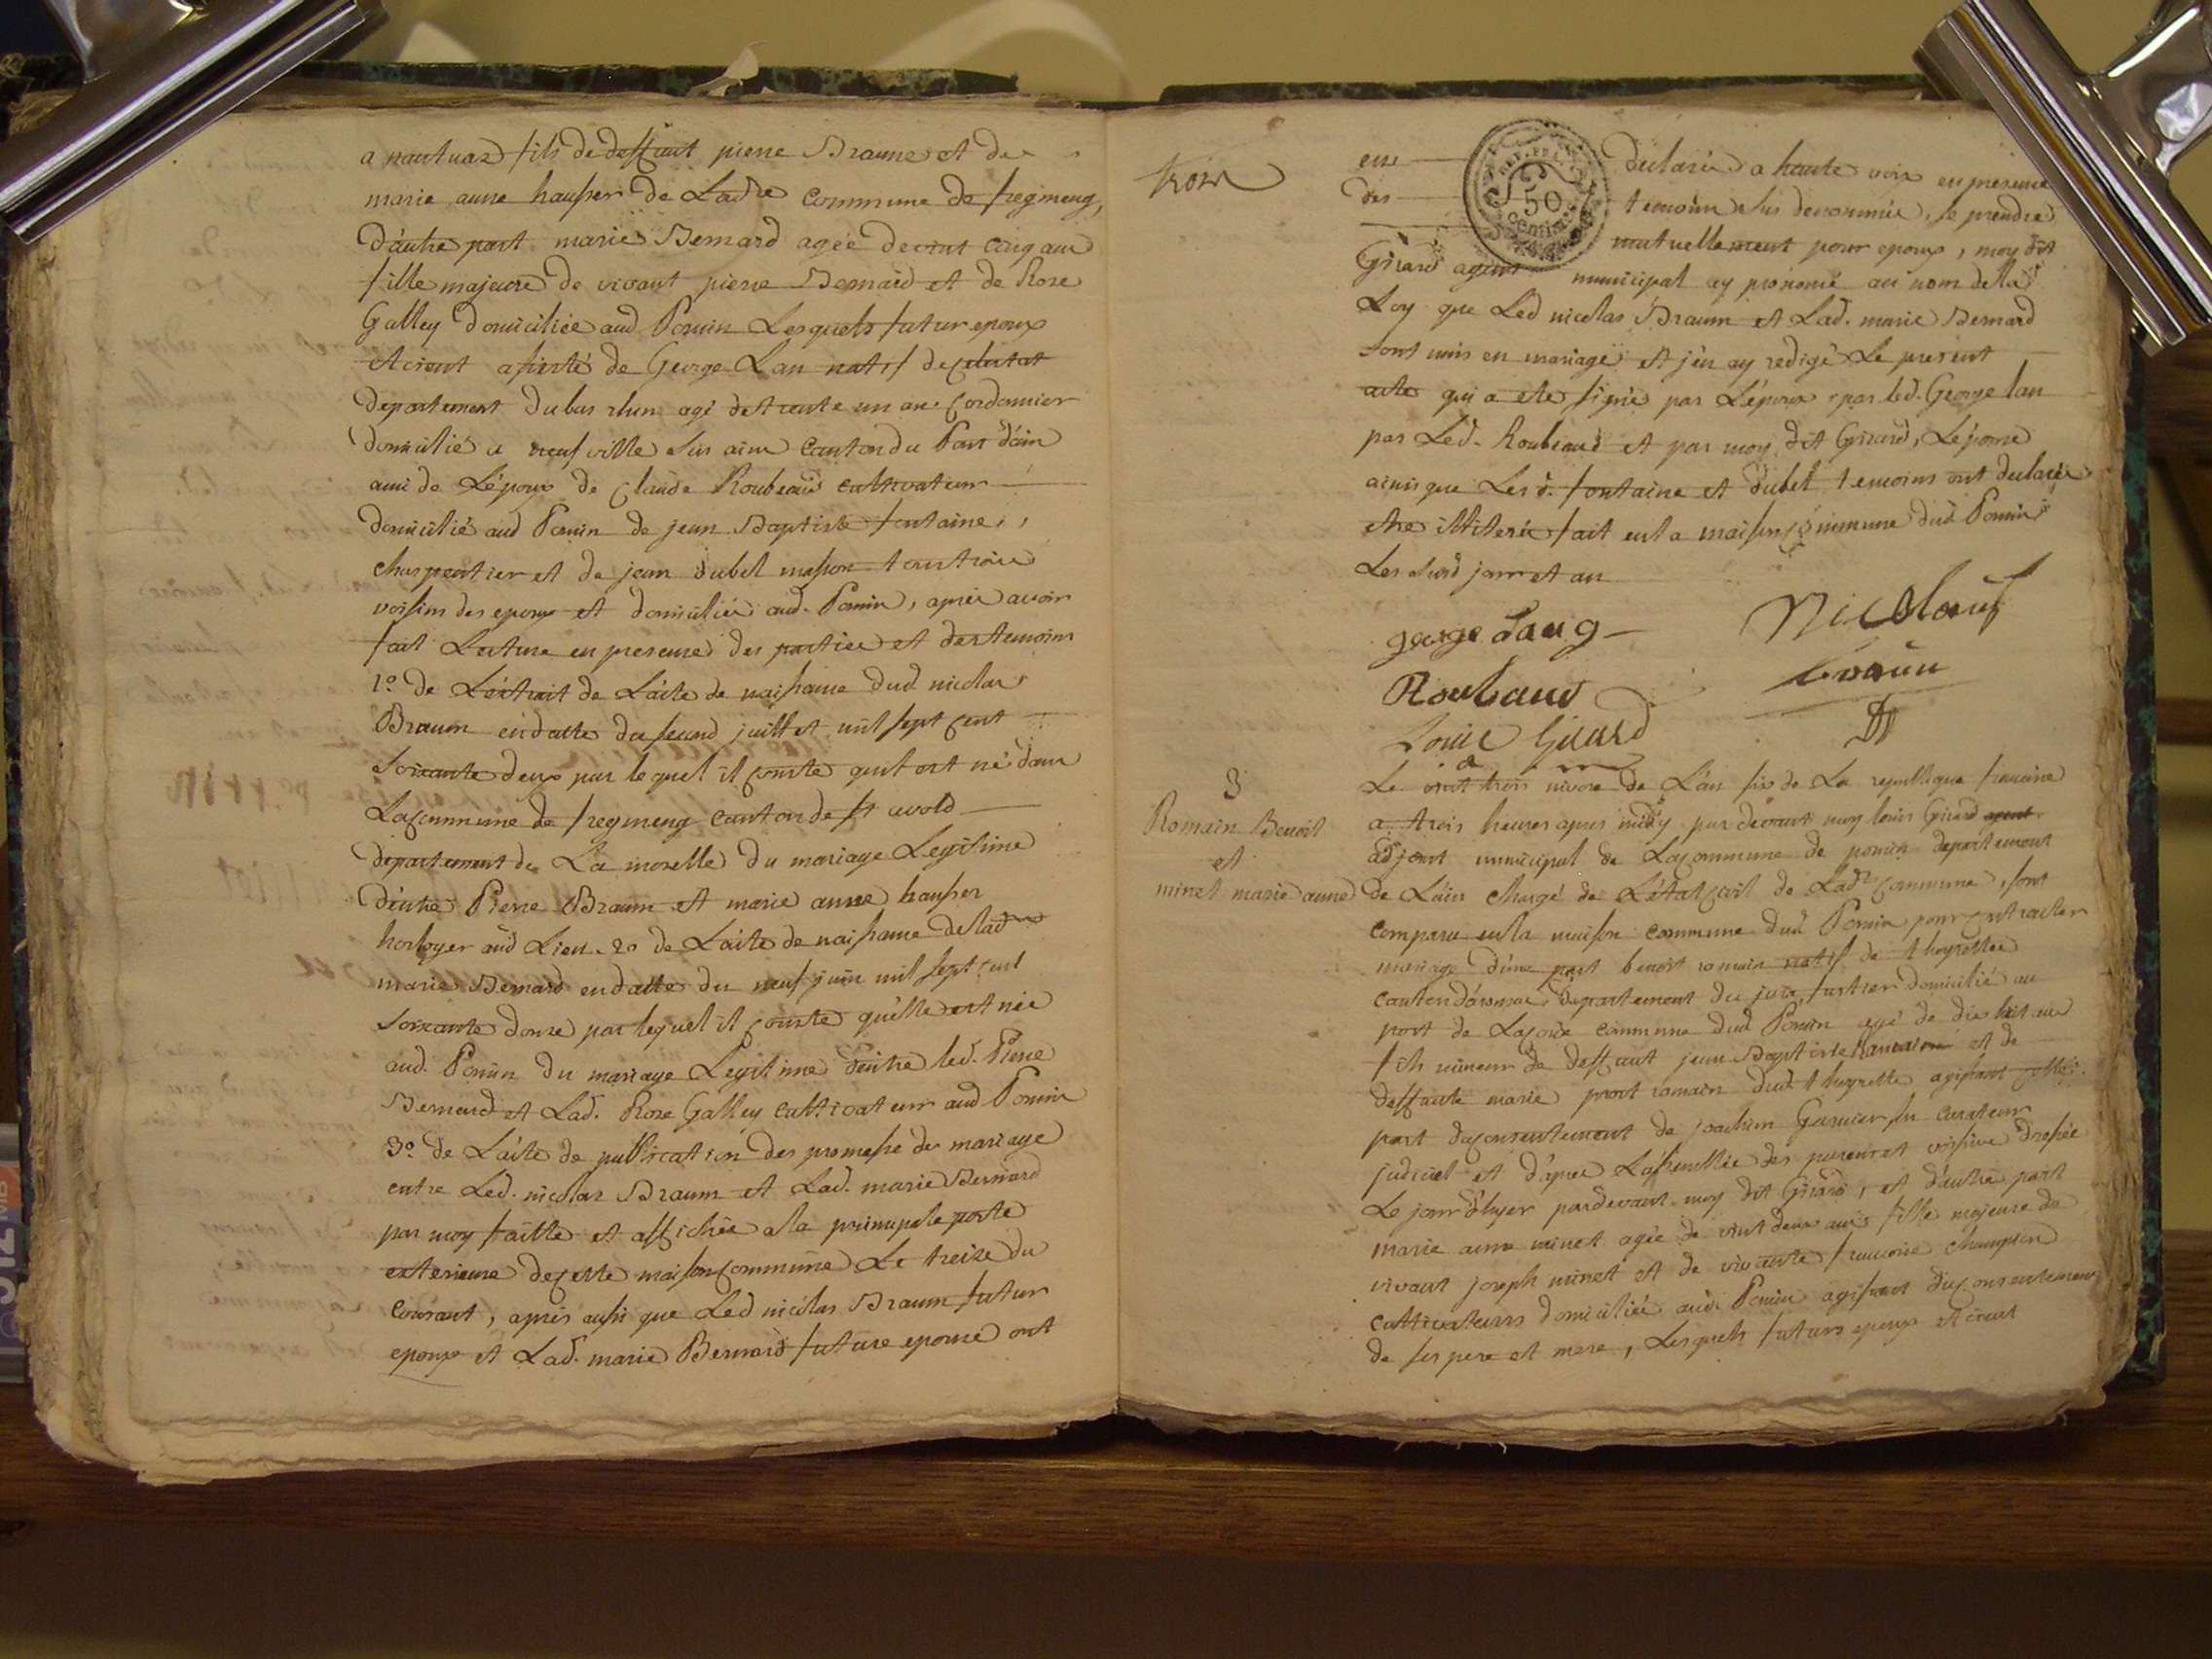 a nantuaz fils de deffunt pierre Braune et de
marie anne hauser de Ladte Commune de fregmeng,
D'autre part marie Bernard agée de vint cinq ans
fille majeure de vivant pierre Bernard et de Rose
Galley domiciliée aud Poncin Lesquels futur epoux
etoient assisté de George Lau natif de
departement du bas rhin agé de trente un ans Cordonnier
domicilié a neufville sur ain Canton du Pont d'ain
ami de L'époux de Claude Roubeaud cultivateur
domicilié aud Poncin de jean Baptiste fontaine,
charpentier et de jean dubel masson tous trois
voisins des epoux et domiciliés aud. Poncin, après avoir
fait Lecture en presence des parties et des temoins
1º de L'extrait de L'acte de naissance dud nicolas
Braum en datte du second juillet mil sept cent
soixante deux par lequel il conste qu'il est né dans
La Commune de fregmeng Canton de St avold
departement de La moselle du mariage Legitime
d'entre Pierre Braum et marie anne hauser
horloger aud Lieu. 2º de L'acte de naissance de lad
marie Bernard en datte du neuf juin mil sept cent
soixante douze par lequel il conste qu'elle est née
aud. Poncin du mariage Legitime d'entre led. Pierre
Bernard et Lad. Rose Galley Cultivateurs aud Poncin
3º de L'acte de publication des promesse de mariage
entre Led. nicolas Braum et Lad. marie Bernard
par moy faitte et affichée a la principale porte
exterieure de cette maison commune Le treize du
Courant, après aussi que Led nicolas Braum futur
epoux et Lad. marie Bernard future epouse ont
trois
declarés a haute voix en presence
des temoins sus denommés, se prendre
mutuellement pour epoux, moy dit
Girard agent municipal ay prononcé au nom de la
Loy que Led nicolas Braum et Lad. marie Bernard
sont unis en mariage et j'en ay redigé Le present
acte qui a eté signé par L'époux par led. George lau
par Led. Roubeaud et par moy dit Girard, L'épouse
ainsi que Les d. fontaine et dubel temoins ont declarés
etre illiterés fait en la maison commune dud Poncin
Les susd jour et an
george Laug
Nicolaus
Roubaud
braun
Louis Girard
3
Romain Benoit
et
minet marie anne
Le vint trois nivose de L'an six de La republique francaise
a trois heures apres midy par devant moy louis Girard agent
adjoint municipal de La Commune de poncin departement
de L'ain chargé de L'état civil de Lade Commune, sont
comparu en la maison commune dud Poncin pour contracter
mariage d'une part benoit romain natif de thoyrette
canton d'arinthod departement du jura, domicilié au
port de commune dud Poncin agé de dix huit ans
fils mineur de deffunt jean Baptiste Romain et de
deffunte marie romain dud thoyrette agissant cette
part du consentement de joachim Garnier sn curateur
judiciel et d'après L'assemblée des parens et voisins dressée
Le jour d'hyer pardevant moy dit Girard, et d'autre part
marie anne minet agée de vint deux ans fille majeure de
vivant joseph minet et de vivante francoise champion
cultivateurs domiciliés aud. Poncin agissant du consentement
de ses pere et mere, Lesquels futurs epoux etoient
REP. FRA.
50
Centimes